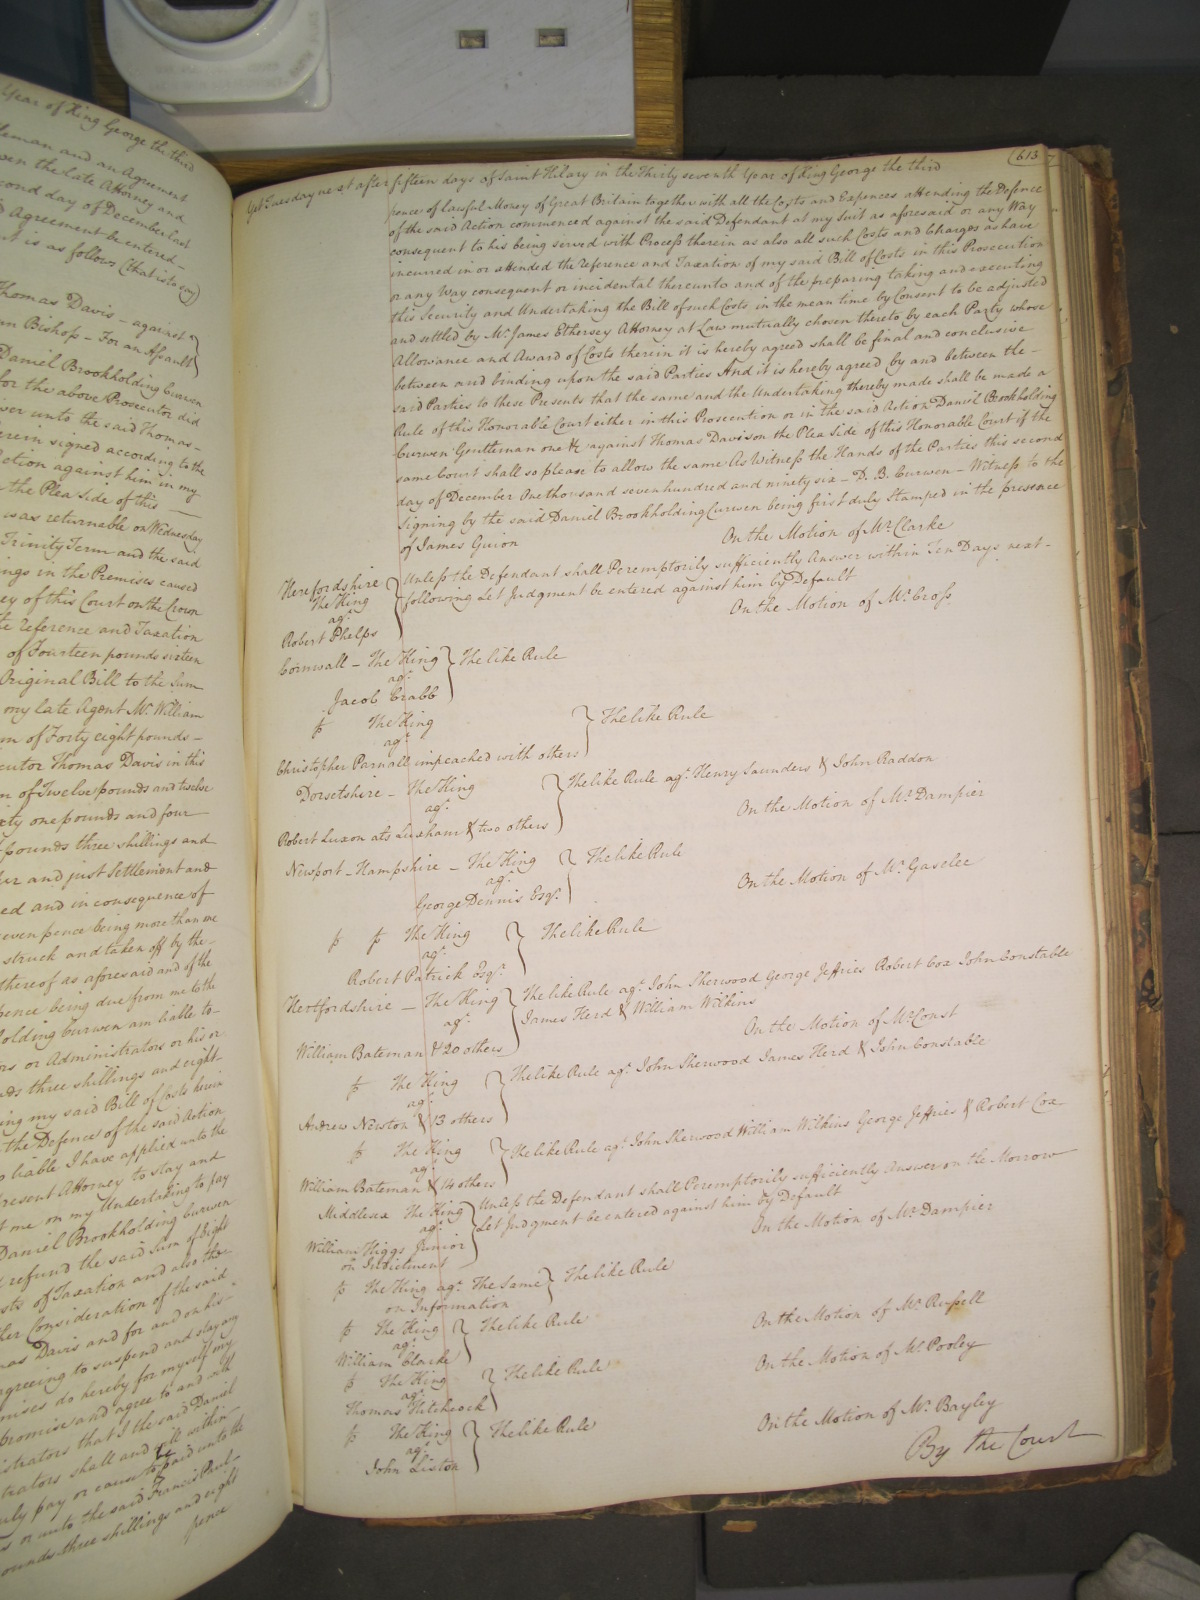 Year of King George the third
and an Agreement
the Late Attorney and
second day of December last
Agreement be entered
is as follows (that is to say)
Thomas Davis - against
Bishop - For an Assault
Daniel Brookholding Curwen
for the above Prosecutor did
unto the said Thomas
signed according to the
Action against him in my
the Plea Side of this
was returnable on Wednesday
Trinity Term and the said
in the Premises caused
of this Court on the Crown
Reference and Taxation
of Fourteen pounds sixteen
Original Bill to the Sum
my late Agent Mr. William
of Forty eight pounds -
Thomas Davis in this
of Twelve pounds and twelve
one pounds and four
pounds three shillings and
and just Settlement and
and in consequence of
seven pence being more than one
struck and taken off by the
thereof as aforesaid and of the
pence being due from me to the
Curwen am liable to
or Administrators or his or
three shillings and eight
my said Bill of Costs herein
the Defence of the said Action
liable I have applied unto the
present Attorney to stay and
me on my Undertaking to pay
Daniel Brookholding Curwen
refund the said Sum of Eight
of Taxation and also the
Consideration of the said
Davis and for and on his
agreeing to suspend and stay any
do hereby for myself my
promise and agree to and with
that I the said Daniel
shall and will within
pay or cause to be paid unto the
or unto the said Francis Paul
three shillings and eight
pence
(613
Yet Tuesday next after fifteen days of Saint Hilary in the Thirty seventh Year of King George the third
pence of lawful Money of Great Britain together with all the Costs and Expences attending the Defence
of the said Action commenced against the said Defendant at my Suit as aforesaid or any Way
consequent to his being served with Process therein as also all such Costs and Charges as have
incurred in or attended the Reference and Taxation of my said Bill of Costs in this Prosecution
or any Way consequent or incidental thereunto and of the preparing taking and executing
this Security and Undertaking the Bill of such Costs in the mean time by Consent to be adjusted
and settled by Mr. James Ethersey Attorney at Law mutually chosen thereto by each Party whose
Allowance and Award of Costs therein it is hereby agreed shall be final and conclusive
between and binding upon the said Parties And it is hereby agreed by and between the -
said Parties to these Presents that the same and the Undertaking thereby made shall be made a
Rule of this Honorable Court either in this Prosecution or in the said Action Daniel Brookholding
Curwen Gentleman one &c against Thomas Davis on the Plea Side of this Honorable Court if the
same Court shall so please to allow the same As Witness the Hands of the Parties this second
day of December One thousand seven hundred and ninety six - D. B. Curwen - Witness to the
Signing by the said Daniel Brookholding Curwen being first duly Stamped in the presence
of James Guion
On the Motion of Mr. Clarke
Herefordshire
The King
agt.
Robert Phelps
Unless the Defendant shall Peremptorily sufficiently Answer within Ten Days next -
following Let Judgment be entered against him by Default
On the Motion of Mr. Cross
Cornwall - The King
agt.
Jacob Crabb
The like Rule
p The King
agt.
Christopher Parnall impeached with others
The like Rule
Dorsetshire - The King
agt.
Robert Luxon als Luxham & two others
The like Rule agt. Henry Saunders & John Raddon
On the Motion of Mr. Dampier
Newport - Hampshire - The King
agt.
George Dennis Esqr.
The like Rule
On the Motion of Mr. Gaselee
p p The King
agt.
Robert Patrick Esqr.
The like Rule
Hertfordshire - The King
agt.
William Bateman & 20 others
The like Rule agt. John Sherwood George Jeffries Robert Cox John Constable
James Herd & William Wilkins
On the Motion of Mr. Const
p The King
agt.
Andrew Newton & 13 others
The like Rule agt. John Sherwood James Herd & John Constable
p The King
agt.
William Bateman & 14 others
The like Rule agt. John Sherwood William Wilkins George Jeffries & Robert Cox
Middlesex The King
agt.
William Higgs Junior
on Indictment
Unless the Defendant shall Peremptorily sufficiently Answer on the Morrow
Let Judgment be entered against him by Default
On the Motion of Mr. Dampier
p The King agt. The Same
on Information
The like Rule
p The King
agt.
William Clarke
The like Rule
On the Motion of Mr. Russell
p The King
agt.
Thomas Hitchcock
The like Rule
On the Motion of Mr. Pooley
p The King
agt.
John Liston
The like Rule
On the Motion of Mr. Bayley
By the Court